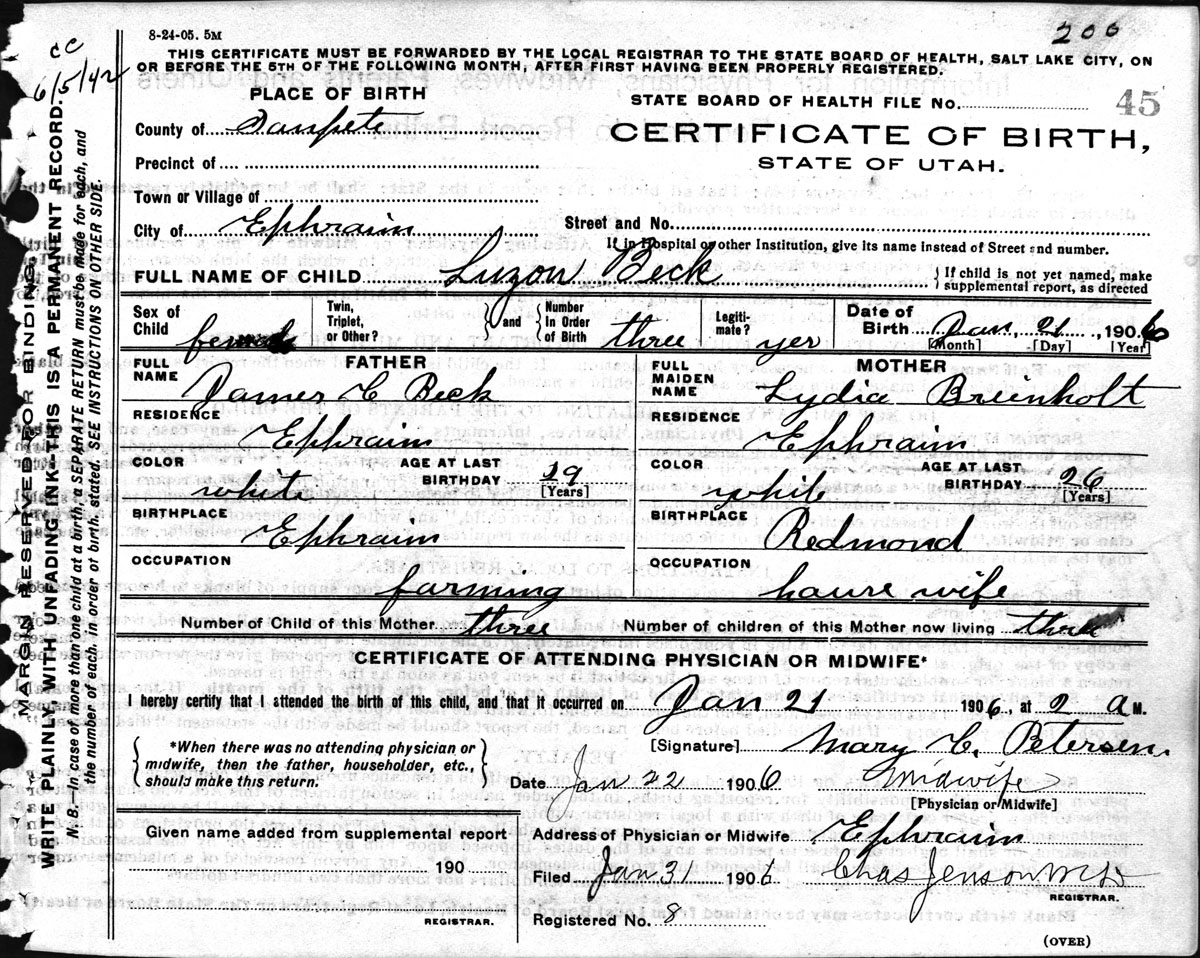 8-24-05. 5M
200
THIS CERTIFICATE MUST BE FORWARDED BY THE LOCAL REGISTRAR TO THE STATE BOARD OF HEALTH, SALT LAKE CITY, ON
OR BEFORE THE 5TH OF THE FOLLOWING MONTH, AFTER FIRST HAVING BEEN PROPERLY REGISTERED.
cc
6/5/42
MARGIN RESERVED FOR BINDING.
WRITE PLAINLY WITH UNFADING INK—THIS IS A PERMANENT RECORD.
N. B.—In case of more than one child at a birth, a SEPARATE RETURN must be made for each, and
the number of each, in order of birth, stated. SEE INSTRUCTIONS ON OTHER SIDE.
PLACE OF BIRTH
STATE BOARD OF HEALTH FILE NO. 45
County of Sanpete
CERTIFICATE OF BIRTH,
Precinct of
STATE OF UTAH.
Town or Village of
City of Ephraim Street and No.
If in Hospital or other Institution, give its name instead of Street and number.
FULL NAME OF CHILD Luzon Beck { If child is not yet named, make
supplemental report, as directed
Sex of Child female
Twin, Triplet, or Other?
and
Number In Order of Birth three
Legitimate? yer
Date of Birth Jan, 21, 1906
[Month] [Day] [Year]
FATHER
FULL NAME James C Beck
RESIDENCE Ephraim
COLOR white AGE AT LAST BIRTHDAY 29 [Years]
BIRTHPLACE Ephraim
OCCUPATION farming
MOTHER
FULL MAIDEN NAME Lydia Breinholt
RESIDENCE Ephraim
COLOR white AGE AT LAST BIRTHDAY 26 [Years]
BIRTHPLACE Redmond
OCCUPATION house wife
Number of Child of this Mother three Number of children of this Mother now living three
CERTIFICATE OF ATTENDING PHYSICIAN OR MIDWIFE*
I hereby certify that I attended the birth of this child, and that it occurred on Jan 21 1906, at 2 A M.
*When there was no attending physician or
midwife, then the father, householder, etc.,
should make this return.
[Signature] Mary C. Petersen
Date Jan 22 1906 Midwife
[Physician or Midwife]
Given name added from supplemental report
190
REGISTRAR.
Address of Physician or Midwife Ephraim
Filed Jan 31 1906 Chas Jenson
REGISTRAR.
Registered No. 8
(OVER)